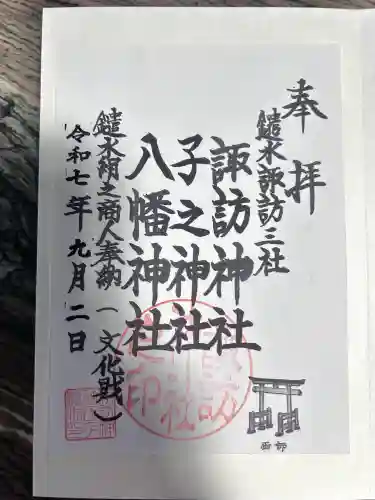 奉拝
鑓水諏訪三社
諏訪神社
子之神社
八幡神社
鑓水絹之商人奉納(文化戝)
令和七年九月二日
西部